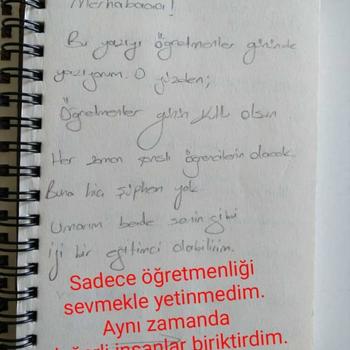 Merhabaaa!
Bu yazıyı öğretmenler gününde
yazıyorum. O yüzden;
Öğretmenler günün kutlu olsun
Her zaman şanslı öğrencilerin olacak.
Buna hiç şüphem yok.
Umarım bende senin gibi
iyi bir eğitimci olabilirim.
Sadece öğretmenliği
sevmekle yetinmedim.
Aynı zamanda
değerli insanlar biriktirdim.